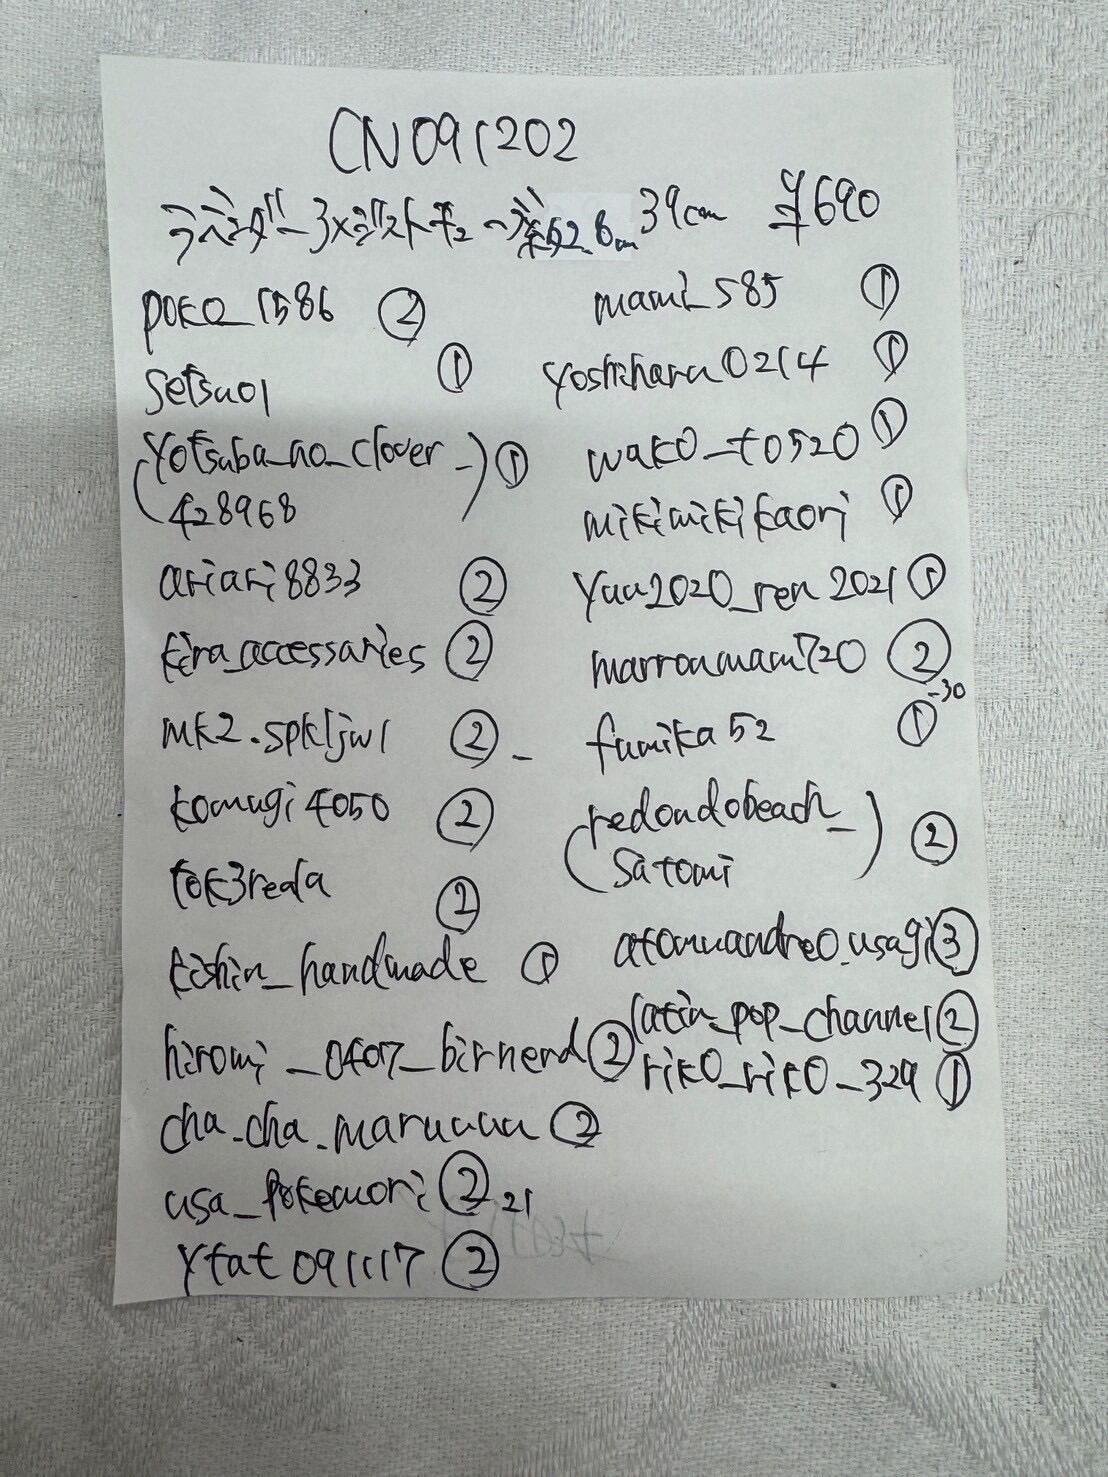 CN091202
ラベンダー3×ミリストチェーン 約2.8cm 39cm ¥690
poko_1586 ②
setsu01 ①
(yotsuba_no_clover_
428968) ①
ariari8833 ②
kira_accessaries ②
mk2.spkljw1 ②
komugi4050 ②
tok3reda ②
kishin_handmade ①
hiromi_0407_birnend ②
cha.cha.maruuuu ②
usa_pokemori ② 21
ytat091117 ②
mami_585 ①
yoshiharu0214 ①
wako_t0520 ①
mikimikikaori ①
yuu2020_ren2021 ①
marronmami720 ②
-30
fumika52 ①
(redondobeach_
satomi) ②
atomuandreo.usagi ③
latin_pop_channel ②
riko_riko_329 ①